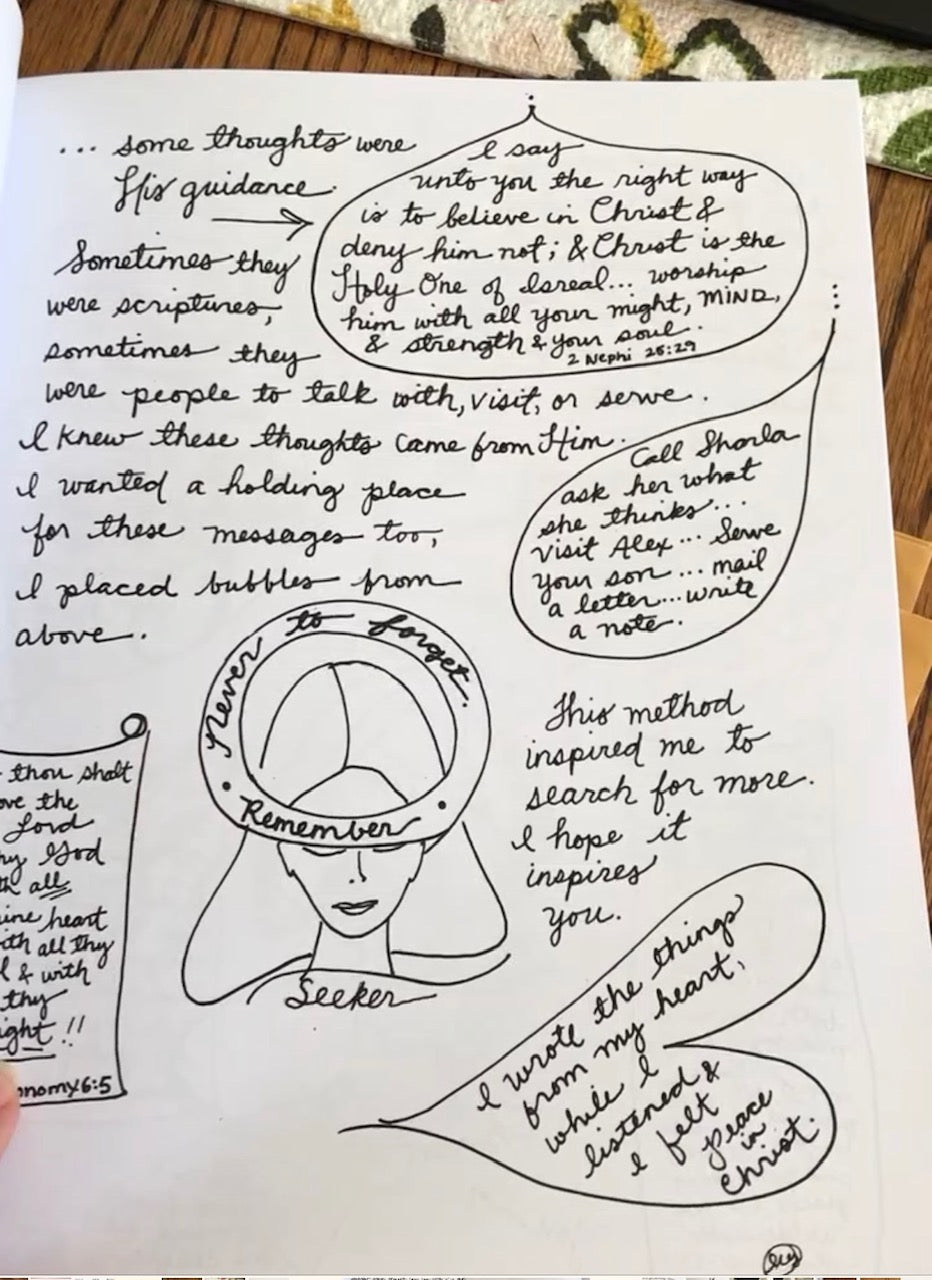 ... some thoughts were
His guidance.
Sometimes they
were scriptures,
sometimes they
were people to talk with, visit, or serve.
I knew these thoughts came from Him.
I wanted a holding place
for these messages too,
I placed bubbles from
above.
I say
unto you the right way
is to believe in Christ &
deny him not; & Christ is the
Holy One of Isreal... worship
him with all your might, MIND,
& strength & your soul.
2 Nephi 25:29
Call Sharla
ask her what
she thinks...
visit Alex... Serve
your son... mail
a letter... write
a note.
never to forget.
• Remember •
Seeker
thou shalt
ove the
Lord
hy God
th all
ine heart
ith all thy
l & with
thy
ight!!
onomy 6:5
This method
inspired me to
search for more.
I hope it
inspires
you.
I wrote the things
from my heart,
while I
listened &
I felt
peace
in
Christ.